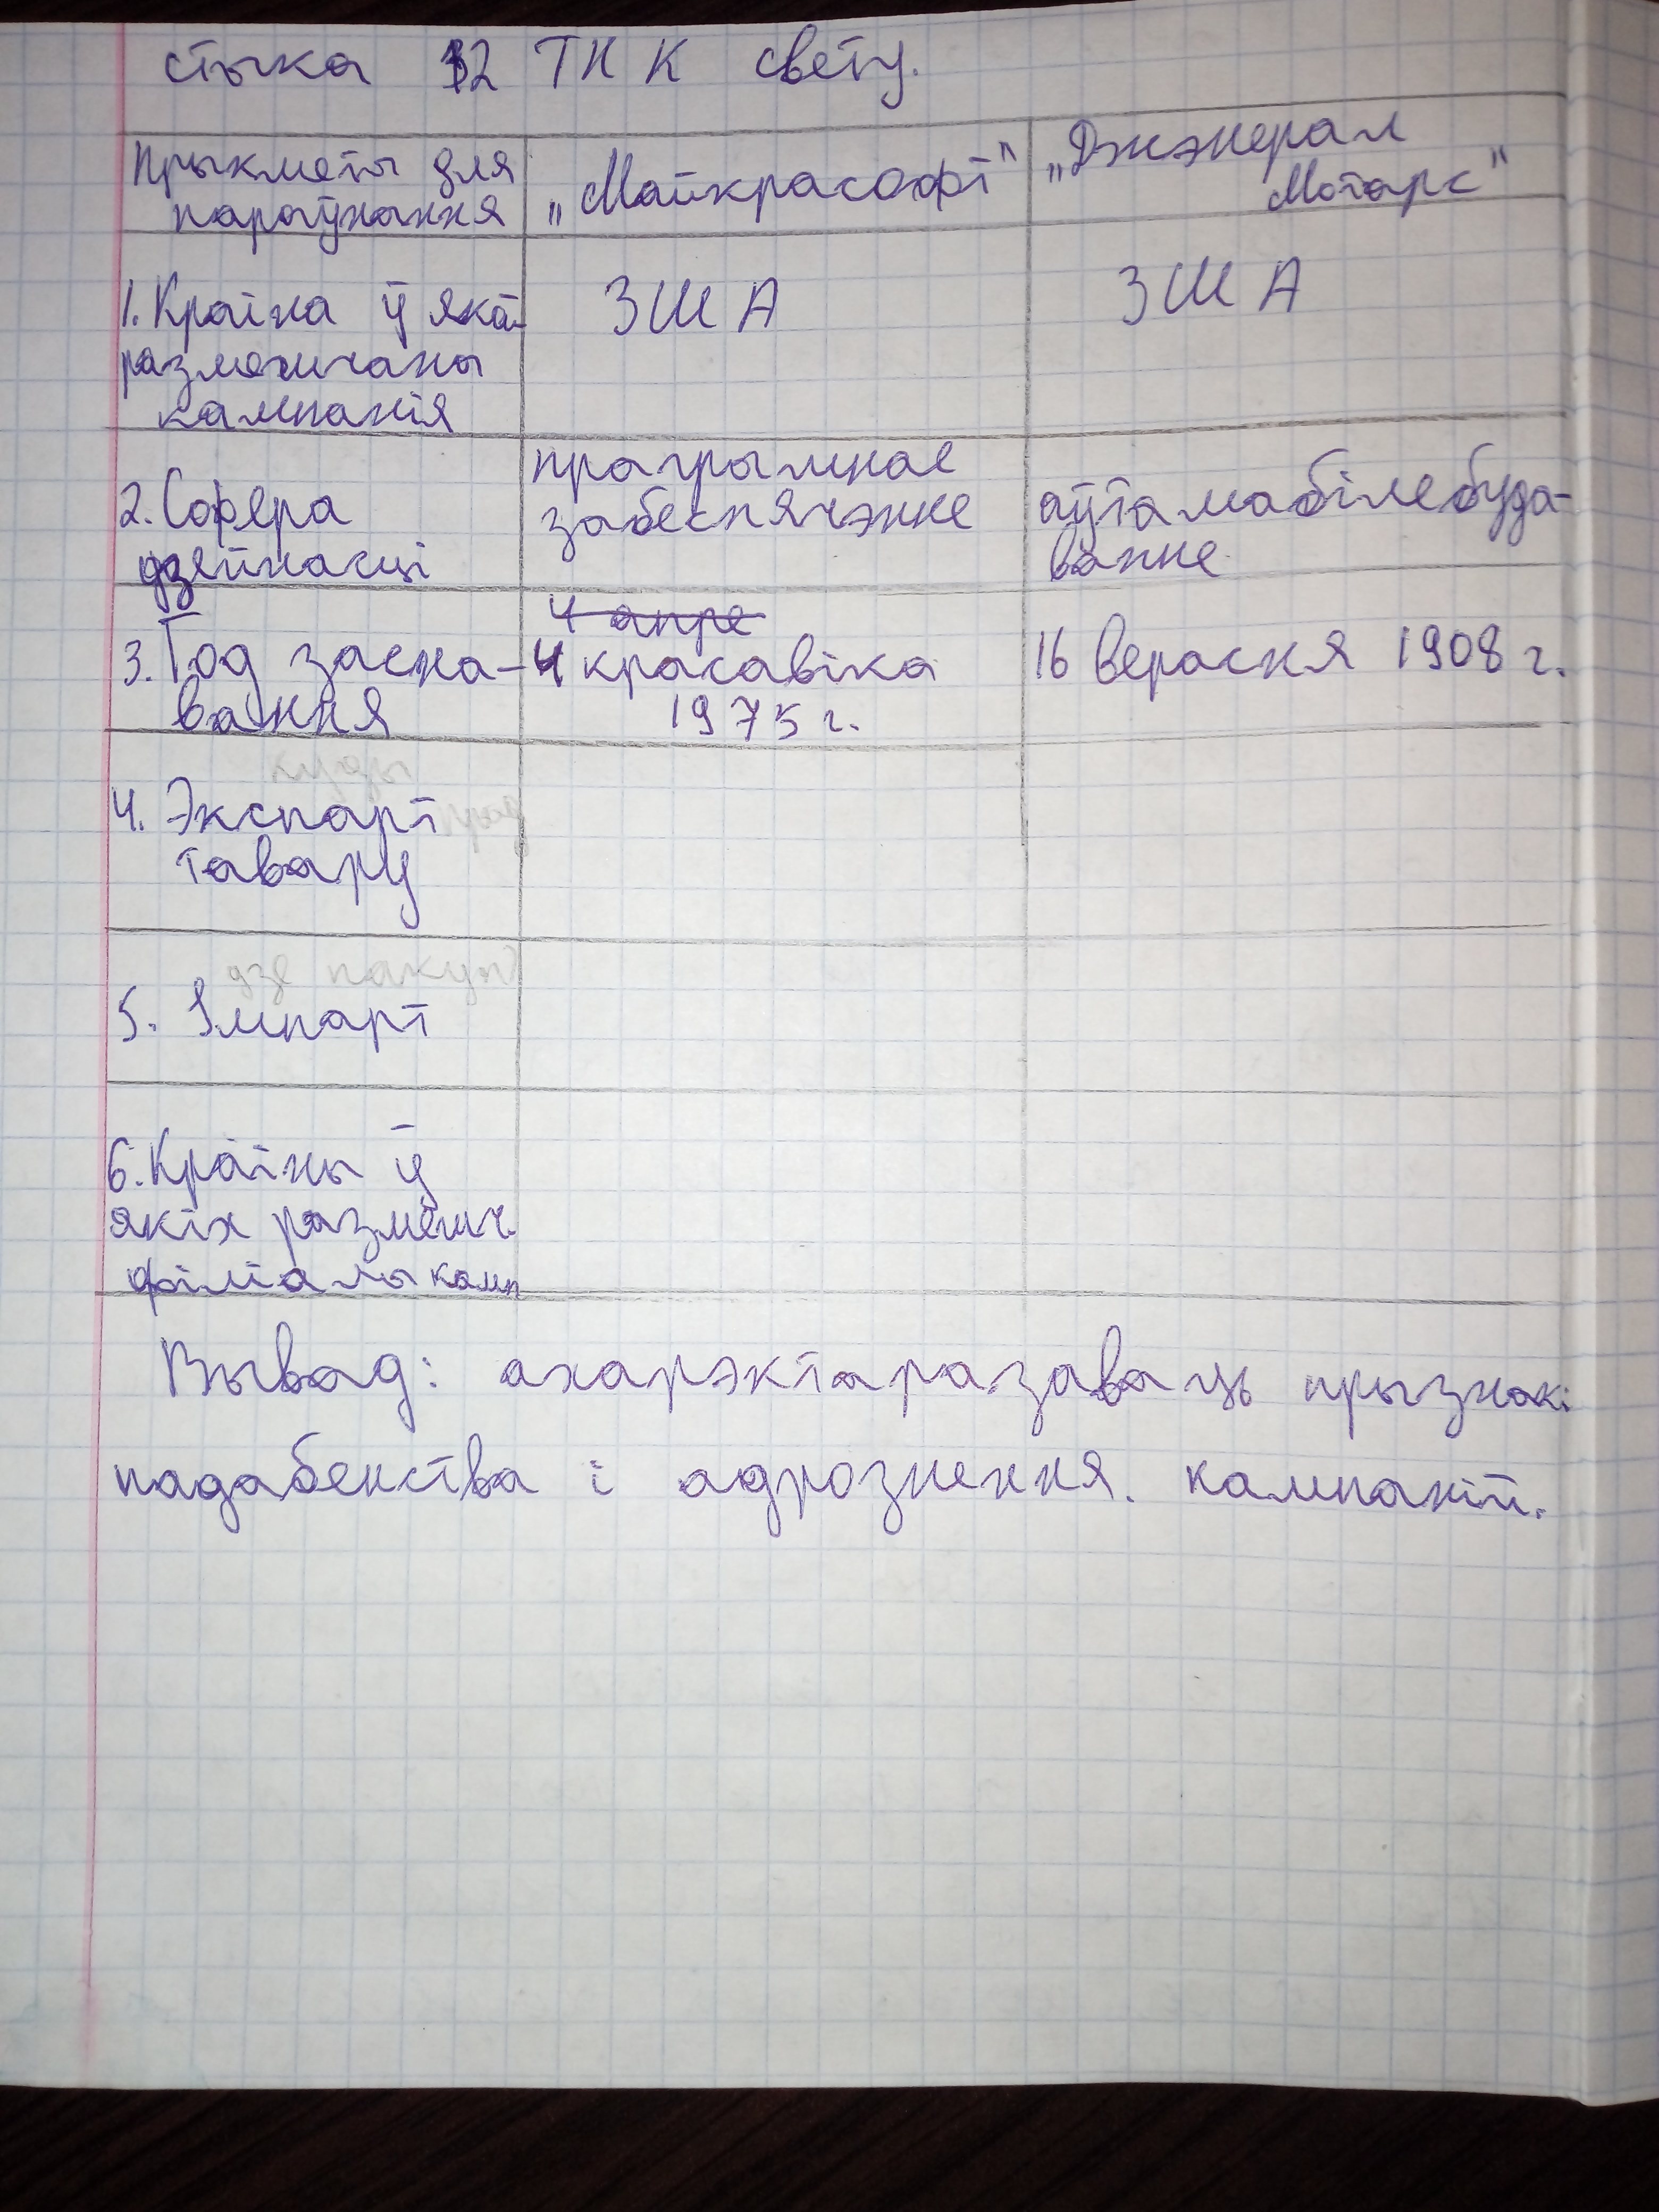 стыка 12 ТНК свету.
Прыкметы для
параўнання
„Майкрасофт"
„Джэнерал
Мотарс"
1. Краіна ў якой
размешчаны
кампанія
ЗША
ЗША
2. Сфера
дзейнасці
праграмнае
забеспячэнне
аўтамабілебуда-
ванне
3. Год засна-
вання
4 апре
4 красавіка
1975 г.
16 верасня 1908 г.
куды
4. Экспарт
тавару
дзе
5. Імпарт
6. Краіны ў
якіх размешч.
філіалы камп
Вывад: ахарэктаразаваць прызнакі
падабенства і адрознення. кампаній.